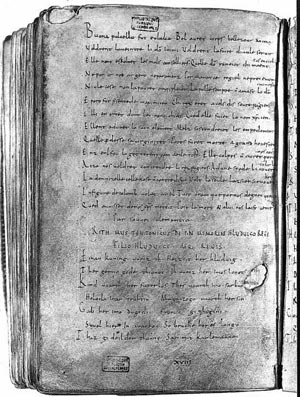 Buona pulcella fut eulalia. Bel auret corps bellezour anima
Voldrent la ueintre li dō Inimi. Voldrent la faire diaule seruir
Elle nont eskoltet les mals conselliers. Quelle dō raneiet chi maent
Ne por or ned argent ne paramenz. Por manatce regiel ne preiement
Niule cose non la pouret omq; pleier. La polle sempre n amast lo dō
E por o fut presentede maximiien. Chi rex eret a cels dis soure pagiens
Il li enortet dont lei nonq; chielt. Qued elle fuiet lo nom xp̄iien
Ellent adunet lo suon element. Melz sostendreiet les empedementz
Quelle perdesse sa uirginitet. Por os furet morte a grand honestet
Enz en l fou la getterent com arde tost. Elle colpes n auret por o
A czo nos uoldret concreidre li rex pagiens. Ad une spede li roueret
La domnizelle celle kose non contredist. Volt lo seule lazsier si ruouet
In figure de colomb uolat a ciel. Tuit oram que por nos degnet
Qued auuisset de nos xp̄s mercit. Post la mort & a lui nos laist uenir
Par souue clementia
RITHMUS TEUTONICUS DE MEMORIAE HLUDUICO REGE
FILIO HLUDUICI AEQ; REGIS
Einan kuning uueiz ih. Heizsit her hluduig
Ther gerno gode thionot. Ih uueiz her imos lonot
Kind uuarth her faterlos. Thes uuarth imo sar buoz
Holoda inan truhtin. Magaczogo uuarth her sin
Gab her imo dugidi. Fronisc githigini
Stuol hier in urankon. So bruche her es lango
Thaz gideilder thanne. Sar mit karlemanne
XVIII